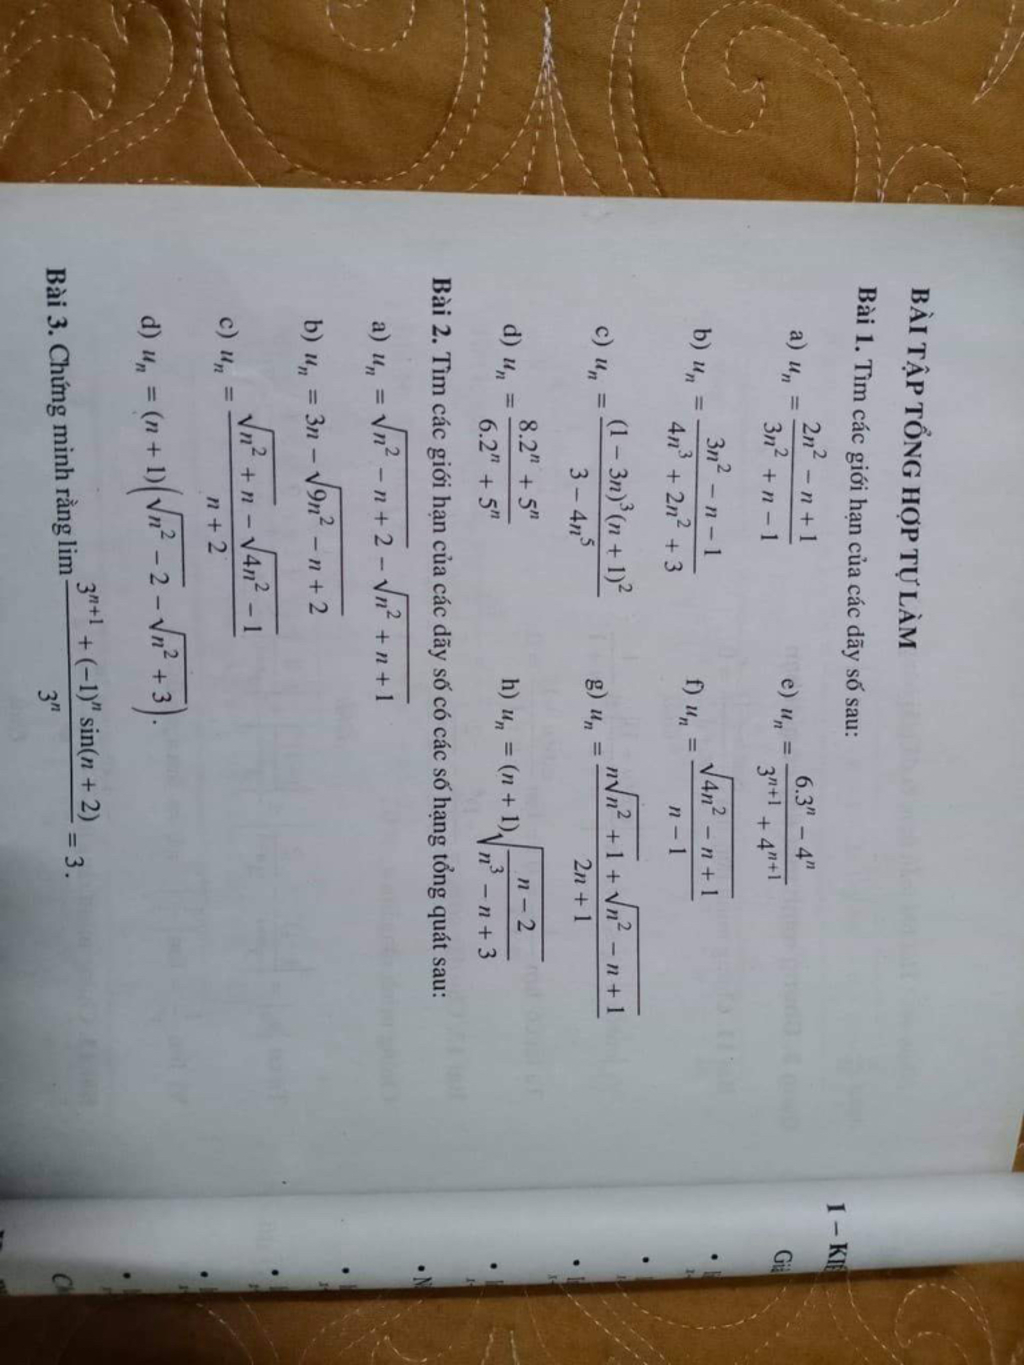 BÀI TẬP TỔNG HỢP TỰ LÀM
Bài 1. Tìm các giới hạn của các dãy số sau:
a) uₙ = (2n² − n + 1)/(3n² + n − 1)
e) uₙ = (6.3ⁿ − 4ⁿ)/(3ⁿ⁺¹ + 4ⁿ⁺¹)
b) uₙ = (3n² − n − 1)/(4n³ + 2n² + 3)
f) uₙ = √(4n² − n + 1)/(n − 1)
c) uₙ = ((1 − 3n)³(n + 1)²)/(3 − 4n⁵)
g) uₙ = (n√(n² + 1) + √(n² − n + 1))/(2n + 1)
d) uₙ = (8.2ⁿ + 5ⁿ)/(6.2ⁿ + 5ⁿ)
h) uₙ = (n + 1)√((n − 2)/(n³ − n + 3))
Bài 2. Tìm các giới hạn của các dãy số có các số hạng tổng quát sau:
a) uₙ = √(n² − n + 2) − √(n² + n + 1)
b) uₙ = 3n − √(9n² − n + 2)
c) uₙ = (√(n² + n) − √(4n² − 1))/(n + 2)
d) uₙ = (n + 1)(√(n² − 2) − √(n² + 3)).
Bài 3. Chứng minh rằng lim (3ⁿ⁺¹ + (−1)ⁿ sin(n + 2))/3ⁿ = 3.
I – KIẾ